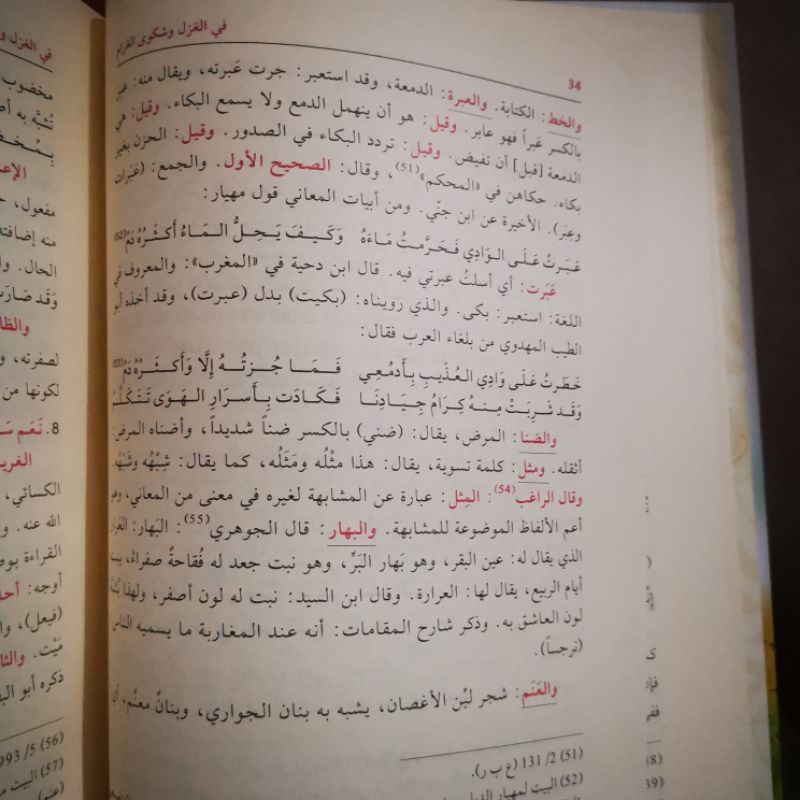 في الغزل وشكوى الغرام
34
والخط: الكتابة. والعبرة: الدمعة، وقد استعبر: جرت عَبرته، ويقال منه: عبر
بالكسر عَبراً فهو عابر. وقيل: هو أن ينهمل الدمع ولا يسمع البكاء. وقيل: هي
الدمعة [قبل] أن تفيض. وقيل: تردد البكاء في الصدور. وقيل: الحزن بغير
بكاء. حكاهن في «المحكم»(51)، وقال: الصحيح الأول. والجمع: (عَبَرات
وعِبَر). الأخيرة عن ابن جنّي. ومن أبيات المعاني قول مهيار:
عَبَرتُ عَلَى الوَادِي فَحَرَّمتُ مَاءَهُ وَكَيفَ يَحِلُّ المَاءُ أَكثَرُهُ دَمُ(52)
عَبَرت: أي أسلتُ عبرتي فيه. قال ابن دحية في «المغرب»: والمعروف في
اللغة: استعبر: بكى. والذي رويناه: (بكيت) بدل (عبرت)، وقد أخذه أبو
الطيب المهدوي من بلغاء العرب فقال:
خَطَرتُ عَلَى وَادِي العُذَيبِ بِأَدمُعِي فَمَا جُزتُهُ إِلَّا وَأَكثَرُهُ دَمُ(53)
وَقَد شَرِبَتْ مِنهُ كِرَامُ جِيَادِنَا فَكَادَت بِأَسرَارِ الهَوَى تَتَكَلَّمُ
والضنا: المرض، يقال: (ضني) بالكسر ضناً شديداً، وأضناه المرض:
أثقله. ومثل: كلمة تسوية، يقال: هذا مثْلُه ومَثَلُه، كما يقال: شِبْهُه وشَبَهُه.
وقال الراغب(54): المِثل: عبارة عن المشابهة لغيره في معنى من المعاني، وهو
أعم الألفاظ الموضوعة للمشابهة. والبهار: قال الجوهري(55): البَهار: العَرار
الذي يقال له: عين البقر، وهو بَهار البَرِّ، وهو نبت جعد له فُقاحةٌ صفراءُ، ينبت
أيام الربيع، يقال لها: العرارة. وقال ابن السيد: نبت له لون أصفر، ولهذا يُشبَّه
لون العاشق به. وذكر شارح المقامات: أنه عند المغاربة ما يسميه الناس
(نرجساً).
والعَنَم: شجر ليِّن الأغصان، يشبه به بنان الجواري، وبنانٌ معنَّم، أي
(51) 2/ 131 (ع ب ر).
(52) البيت لمهيار
في الغزل و
مخضوب
تُشبَّه به أص
الإع
مفعول،
منه إضافته
الحال.
وَقَد صَارَ
والظا
لصفرته،
لكونها من
8. نَعَم سَ
الغري
الكسائي،
الله عنه.
القراءة بو
أوجه: أحد
(فيعل)،
مَيْت. والثا
ذكره أبو الب
(56) 5/ 993
(57) البيت
(عنم)